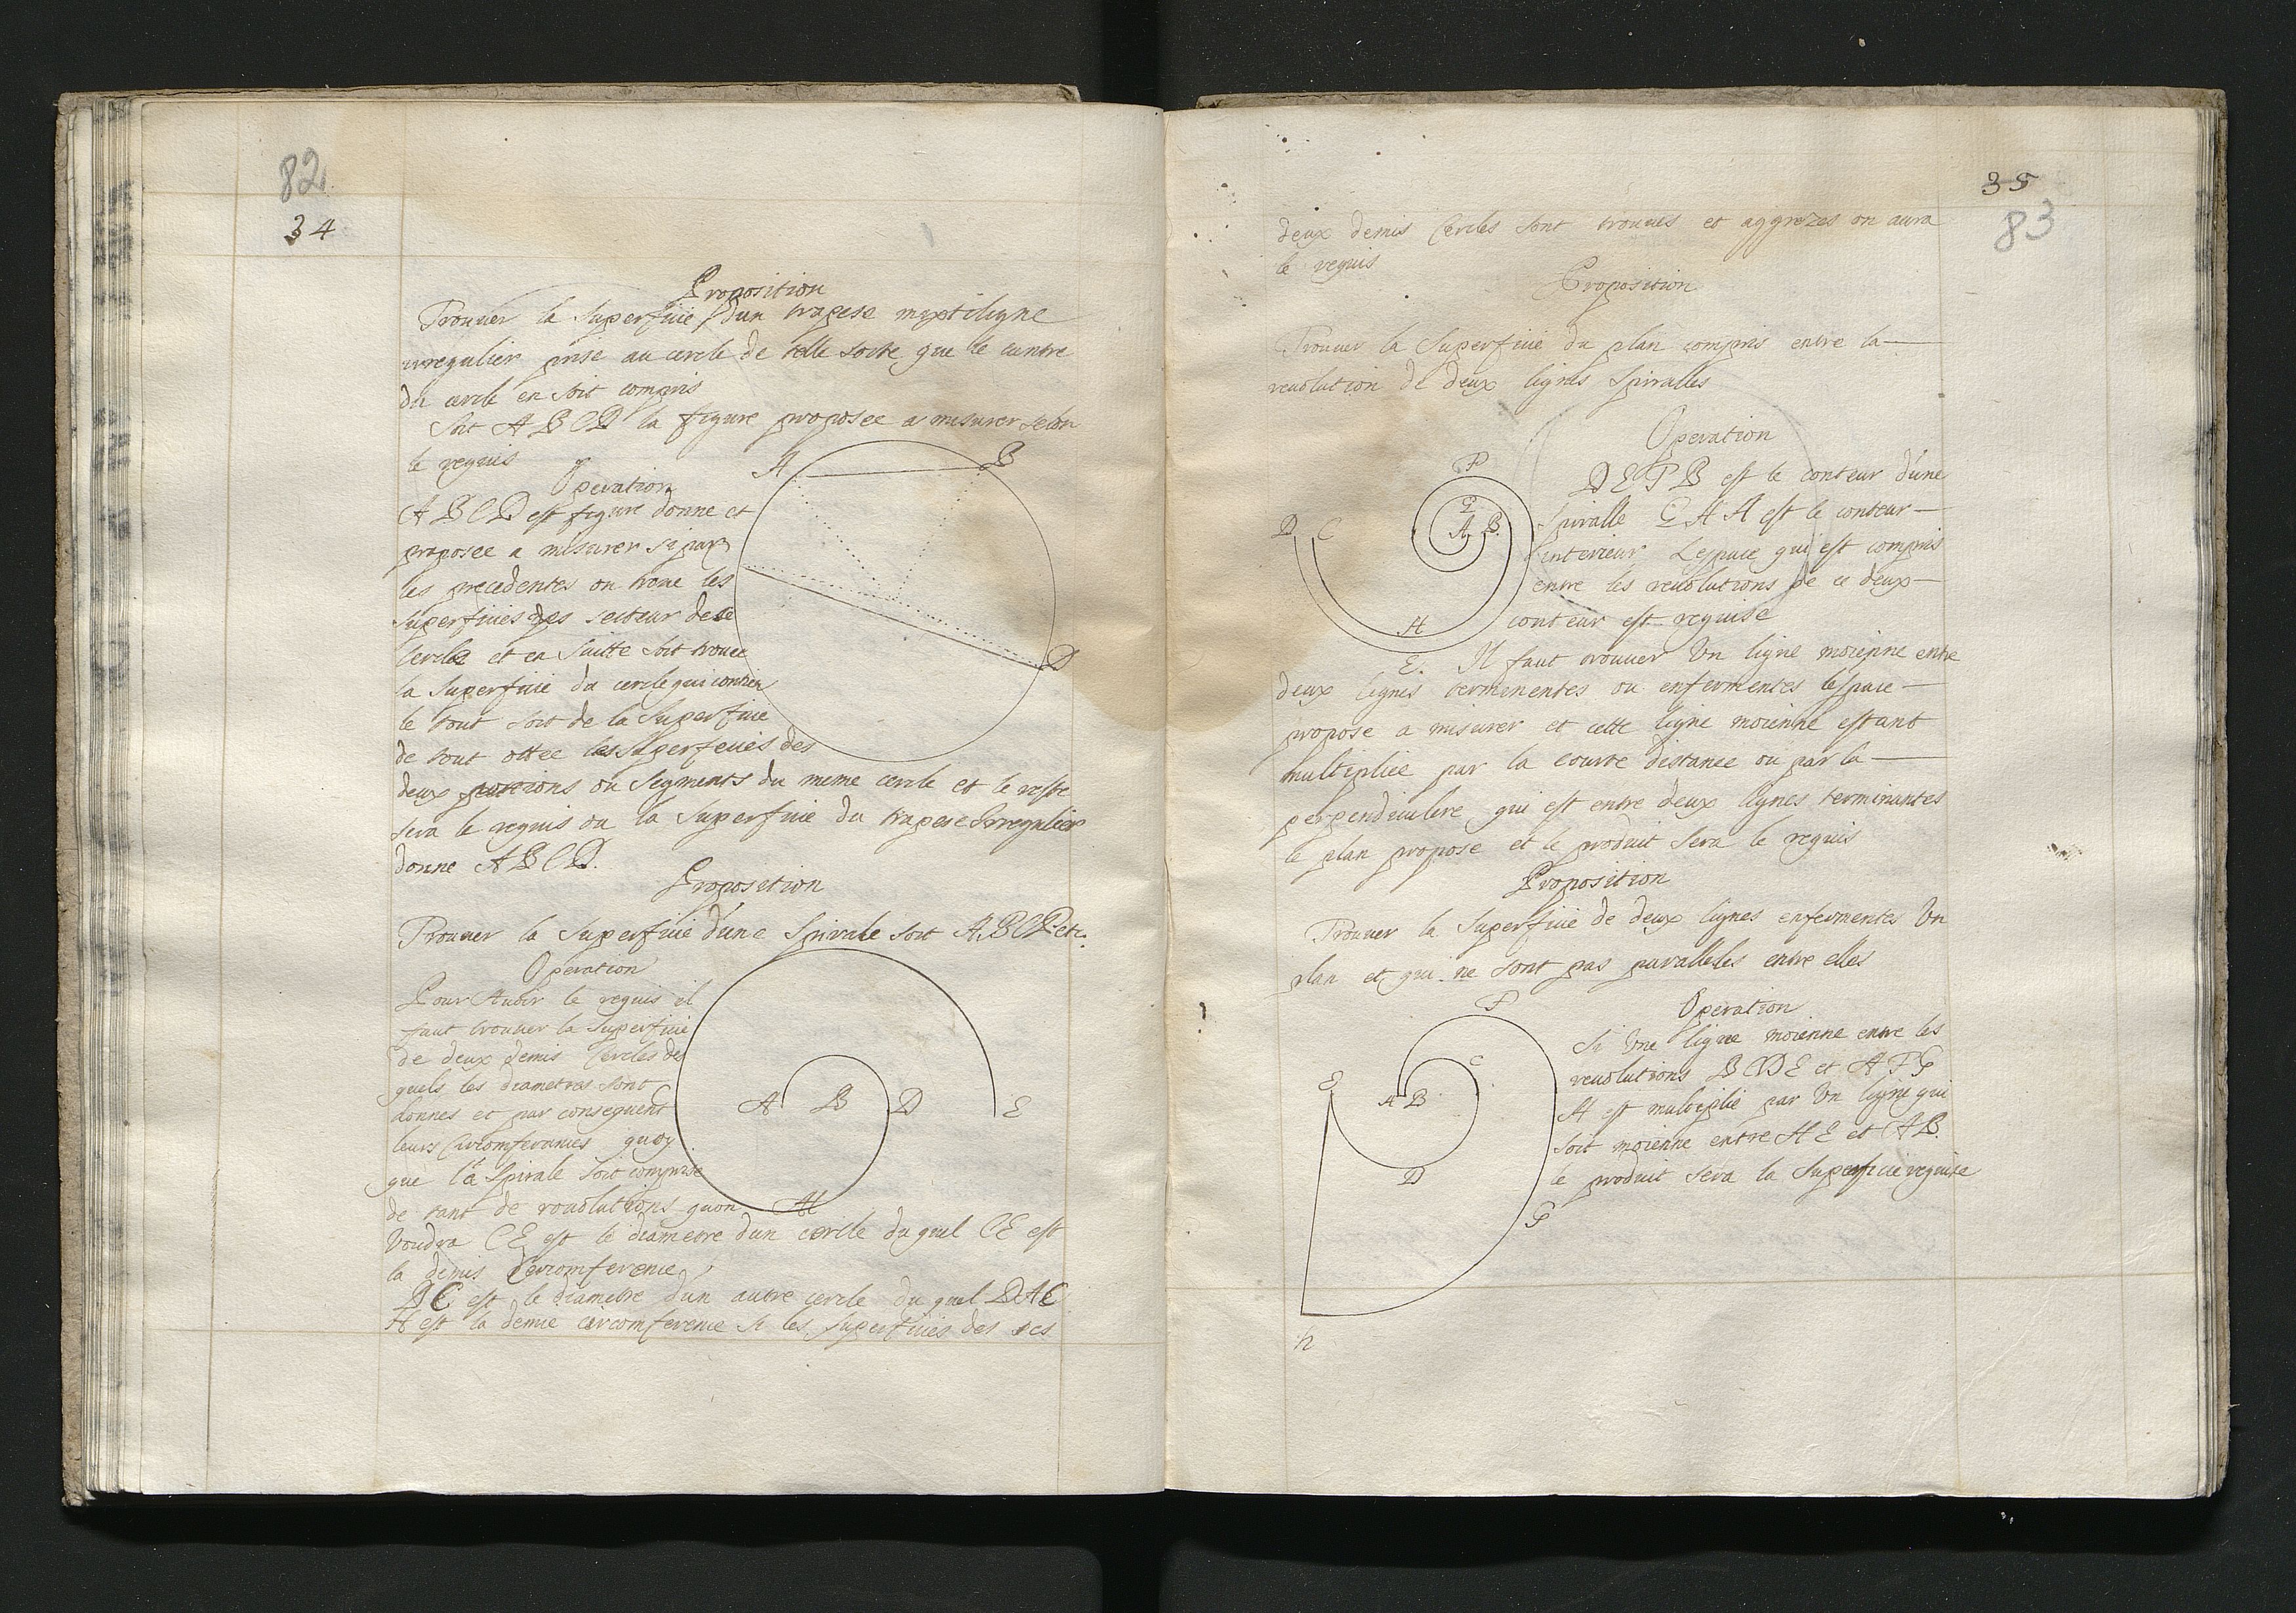 82
34
Proposition
Trouuer la Superficie d'un trapese mixtiligne
irregulier prise au cercle de telle sorte que le centre
du cercle en soit compris
Soit ABCD la figure proposee a mesurer selon
le requis
A B
Operation
ABCD est figure donne et
proposee a mesurer si par
les precedentes on troue les
superficies des secteur de ce
Cercle et en Suitte soit trouee
la Superficie du cercle qui contien
D
le tout soit de la Superficie
de tout ottee les Superfeuies des
deux portions ou Segments du meme cercle et le reste
sera le requis ou la Superficie du trapese Irregulier
donne ABCD.
Proposition
Trouuer la Superficie d'une Spirale soit ABCD etc.
Operation
Pour Auoir le requis il
faut trouuer la Superficie
de deux demis Cercles des
quels les diametres sont
donnes et par consequent
C A B D E
leurs Circomferances quoy
que la Spirale soit comprise
de tant de reuolutions quon
H
Voudra CE est le diametre d'un cercle du quel CE est
la demis Circomference
DC est le diametre d'un autre cercle du quel DAC
H est la demie circomference Si les superficies des ces
35
83
deux demis Cercles sont trouues et aggrezes on aura
le requis
Proposition
Trouuer la Superficie du plan compris entre la
reuolution de deux lignes Spiralles
Operation
F
DEFB est le conteur d'une
G
D C A B
Spiralle GAH est le conteur
interieur Lespace qui est compris
entre les reuolutions de ce deux
conteur est requise
H
E. Il faut trouuer Un ligne moienne entre
deux lignes termenentes ou enfermentes lespace
propose a misurer et cette ligne moienne estant
multipliee par la courte distance ou par la
perpendiculere qui est entre deux lignes terminantes
le plan propose et le produit Sera le requis
Proposition
Trouuer la Superficie de deux lignes enfermentes Un
plan et qui ne sont pas paralleles entre elles
F
Operation
Si Une ligne moienne entre les
C
E
reuolutions BCDE et AFG
A B
H est multiplie par Un ligne qui
soit moienne entre HE et AB.
D
le produit Sera la Superficie requise
G
h